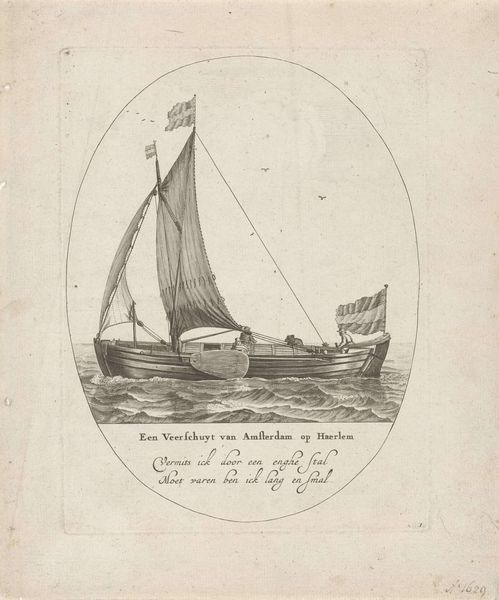 Een Veerſchuyt van Amſterdam op Haerlem
Vermits ick door een enghe ſtal
Moet varen ben ick lang en ſmal
1.
A. 1629